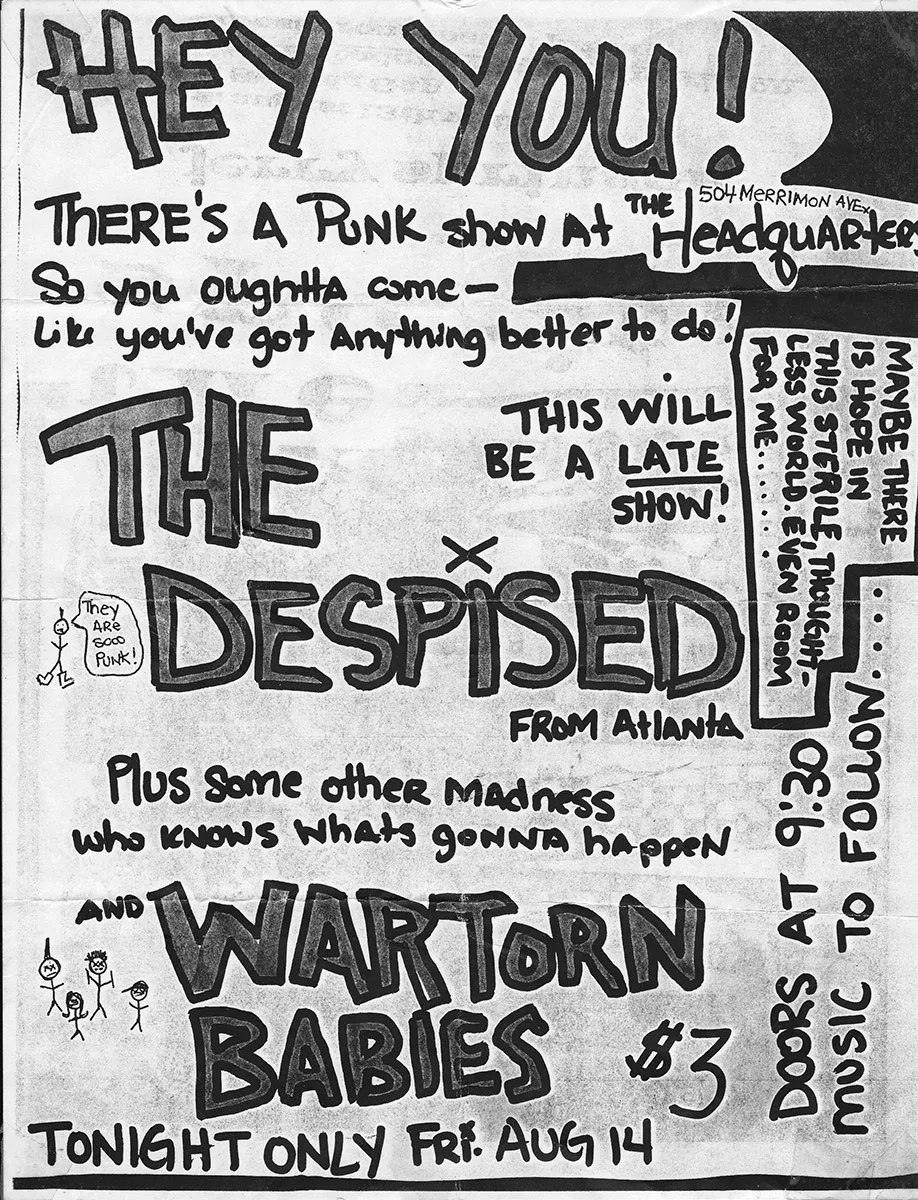 HEY YOU!
THERE'S A PUNK show At THE HeAdquARteRS
504 MeRRIMON AVE.
So you oughttA come—
Like you've got Anything better to do!
THE
DESPISED
FROM AtlANtA
THIS WILL
BE A LATE
SHOW!
MAYBE THERE
IS HOPE IN
THIS STERILE, THOUGHT-
LESS WORLD. EVEN ROOM
FOR ME......
They
ARe
sooo
PUNK!
Plus some other MAdness
who KNOWS whats gonna happeN
AND WARTORN
BABIES
$3
DOORS AT 9:30
MUSIC TO FOLLOW.....
TONIGHT ONLY FRi. AUG 14